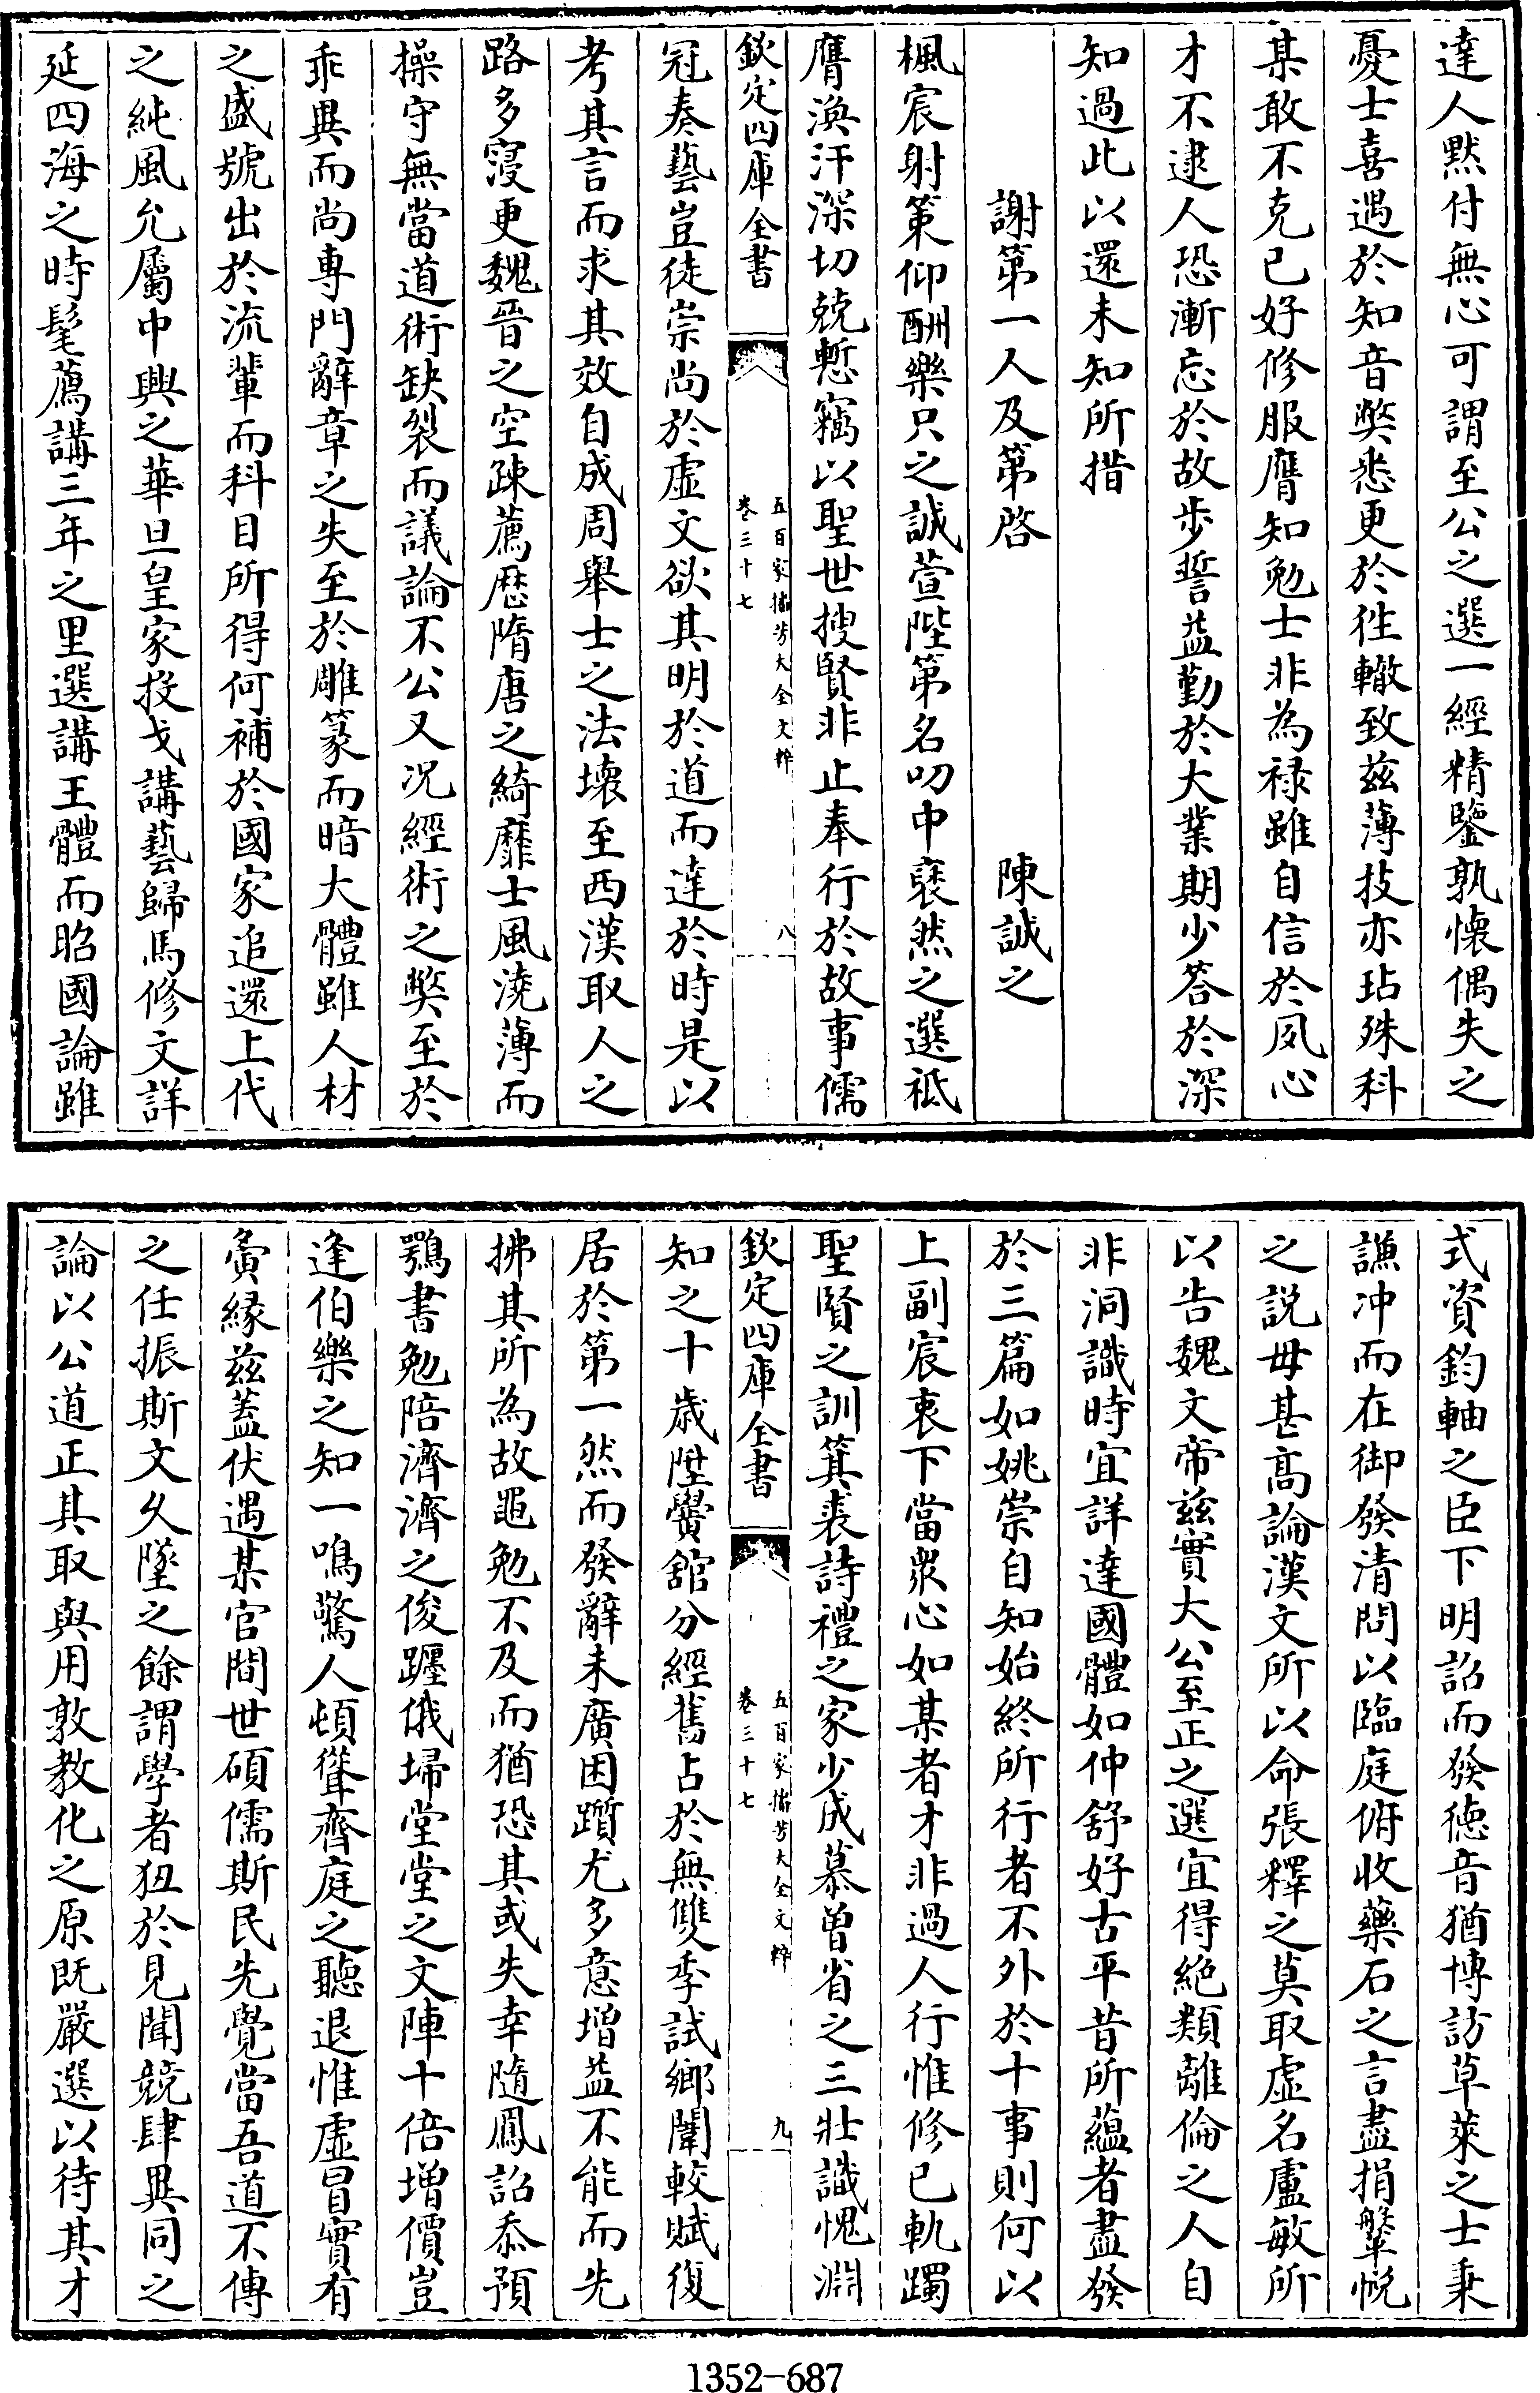 達人黙付無心可謂至公之選一經精鑒孰懷偶失之
憂士喜遇於知音獘悉更於徃轍致兹薄技亦玷殊科
某敢不克已好修服膺知勉士非為禄雖自信於夙心
才不逮人恐漸忘於故步誓益勤於大業期少答於深
知過此以還未知所措
謝第一人及第啓 陳誠之
楓宸射策仰酬樂只之誠萱陛第名叨中褎然之選祗
膺渙汗深切兢慙竊以聖世搜賢非止奉行於故事儒
欽定四庫全書
五百家播芳大全文粹
卷三十七
八
冠奏藝豈徒崇尚於虚文欲其明於道而達於時是以
考其言而求其效自成周舉士之法壞至西漢取人之
路多寖更魏晉之空疎薦歴隋唐之綺靡士風澆薄而
操守無當道術缺裂而議論不公又况經術之獘至於
乖異而尚專門辭章之失至於雕篆而暗大體雖人材
之盛號出於流輩而科目所得何補於國家追還上代
之純風允屬中興之華旦皇家投戈講藝歸馬修文詳
延四海之時髦薦講三年之里選講王體而昭國論雖
式資鈞軸之臣下明詔而發德音猶博訪草萊之士秉
謙冲而在御發清問以臨庭俯收藥石之言盡捐鞶帨
之説毋甚髙論漢文所以命張釋之莫取虚名盧敏所
以告魏文帝兹實大公至正之選宜得絶類離倫之人自
非洞識時宜詳達國體如仲舒好古平昔所藴者盡發
於三篇如姚崇自知始終所行者不外於十事則何以
上副宸衷下當衆心如某者才非過人行惟修已軌躅
聖賢之訓箕裘詩禮之家少成慕曽省之三壯識愧淵
欽定四庫全書
五百家播芳大全文粹
卷三十七
九
知之十歳陞黌舘分經舊占於無雙季試鄉闈較賦復
居於第一然而發辭未廣困躓尤多意增益不能而先
拂其所為故黽勉不及而猶恐其或失幸隨鳳詔忝預
鶚書勉陪濟濟之俊躔俄埽堂堂之文陣十倍增價豈
逢伯樂之知一鳴驚人頓聳齊庭之聽退惟虚冒實有
夤縁兹蓋伏遇某官間世碩儒斯民先覺當吾道不傳
之任振斯文久墜之餘謂學者狃於見聞競肆異同之
論以公道正其取與用敦教化之原既嚴選以待其才
1352-687